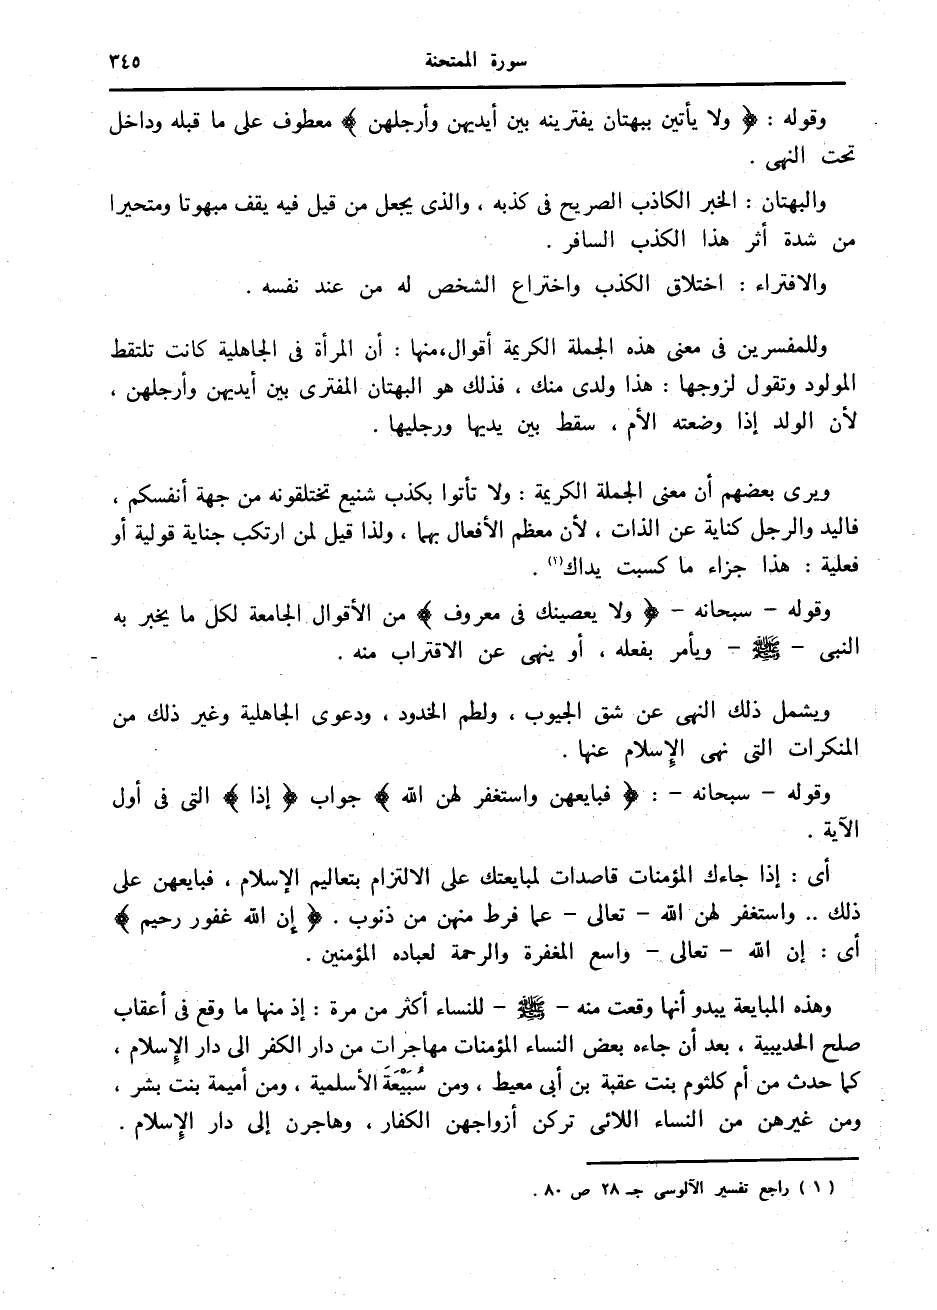 سورة الممتحنة
٣٤٥
وقوله : ﴿ ولا يأتين ببهتان يفترينه بين أيديهن وأرجلهن ﴾ معطوف على ما قبله وداخل
تحت النهى .
والبهتان : الخبر الكاذب الصريح فى كذبه ، والذى يجعل من قيل فيه يقف مبهوتا ومتحيرا
من شدة أثر هذا الكذب السافر .
والافتراء : اختلاق الكذب واختراع الشخص له من عند نفسه .
وللمفسرين فى معنى هذه الجملة الكريمة أقوال،منها : أن المرأة فى الجاهلية كانت تلتقط
المولود وتقول لزوجها : هذا ولدى منك ، فذلك هو البهتان المفترى بين أيديهن وأرجلهن ،
لأن الولد إذا وضعته الأم ، سقط بين يديها ورجليها .
ويرى بعضهم أن معنى الجملة الكريمة : ولا تأتوا بكذب شنيع تختلقونه من جهة أنفسكم ،
فاليد والرجل كناية عن الذات ، لأن معظم الأفعال بهما ، ولذا قيل لمن ارتكب جناية قولية أو
فعلية : هذا جزاء ما كسبت يداك(١) .
وقوله – سبحانه – ﴿ ولا يعصينك فى معروف ﴾ من الأقوال الجامعة لكل ما يخبر به
النبى – ﷺ – ويأمر بفعله ، أو ينهى عن الاقتراب منه .
ويشمل ذلك النهى عن شق الجيوب ، ولطم الخدود ، ودعوى الجاهلية وغير ذلك من
المنكرات التى نهى الإسلام عنها .
وقوله – سبحانه – : ﴿ فبايعهن واستغفر لهن الله ﴾ جواب ﴿ إذا ﴾ التى فى أول
الآية .
أى : إذا جاءك المؤمنات قاصدات لمبايعتك على الالتزام بتعاليم الإسلام ، فبايعهن على
ذلك .. واستغفر لهن الله – تعالى – عما فرط منهن من ذنوب . ﴿ إن الله غفور رحيم ﴾
أى : إن الله – تعالى – واسع المغفرة والرحمة لعباده المؤمنين .
وهذه المبايعة يبدو أنها وقعت منه – ﷺ – للنساء أكثر من مرة : إذ منها ما وقع فى أعقاب
صلح الحديبية ، بعد أن جاءه بعض النساء المؤمنات مهاجرات من دار الكفر الى دار الإسلام ،
كما حدث من أم كلثوم بنت عقبة بن أبى معيط ، ومن سُبَيْعَةَ الأسلمية ، ومن أميمة بنت بشر ،
ومن غيرهن من النساء اللائى تركن أزواجهن الكفار ، وهاجرن إلى دار الإسلام .
( ١ ) راجع تفسير الآلوسى جـ ٢٨ ص ٨٠ .